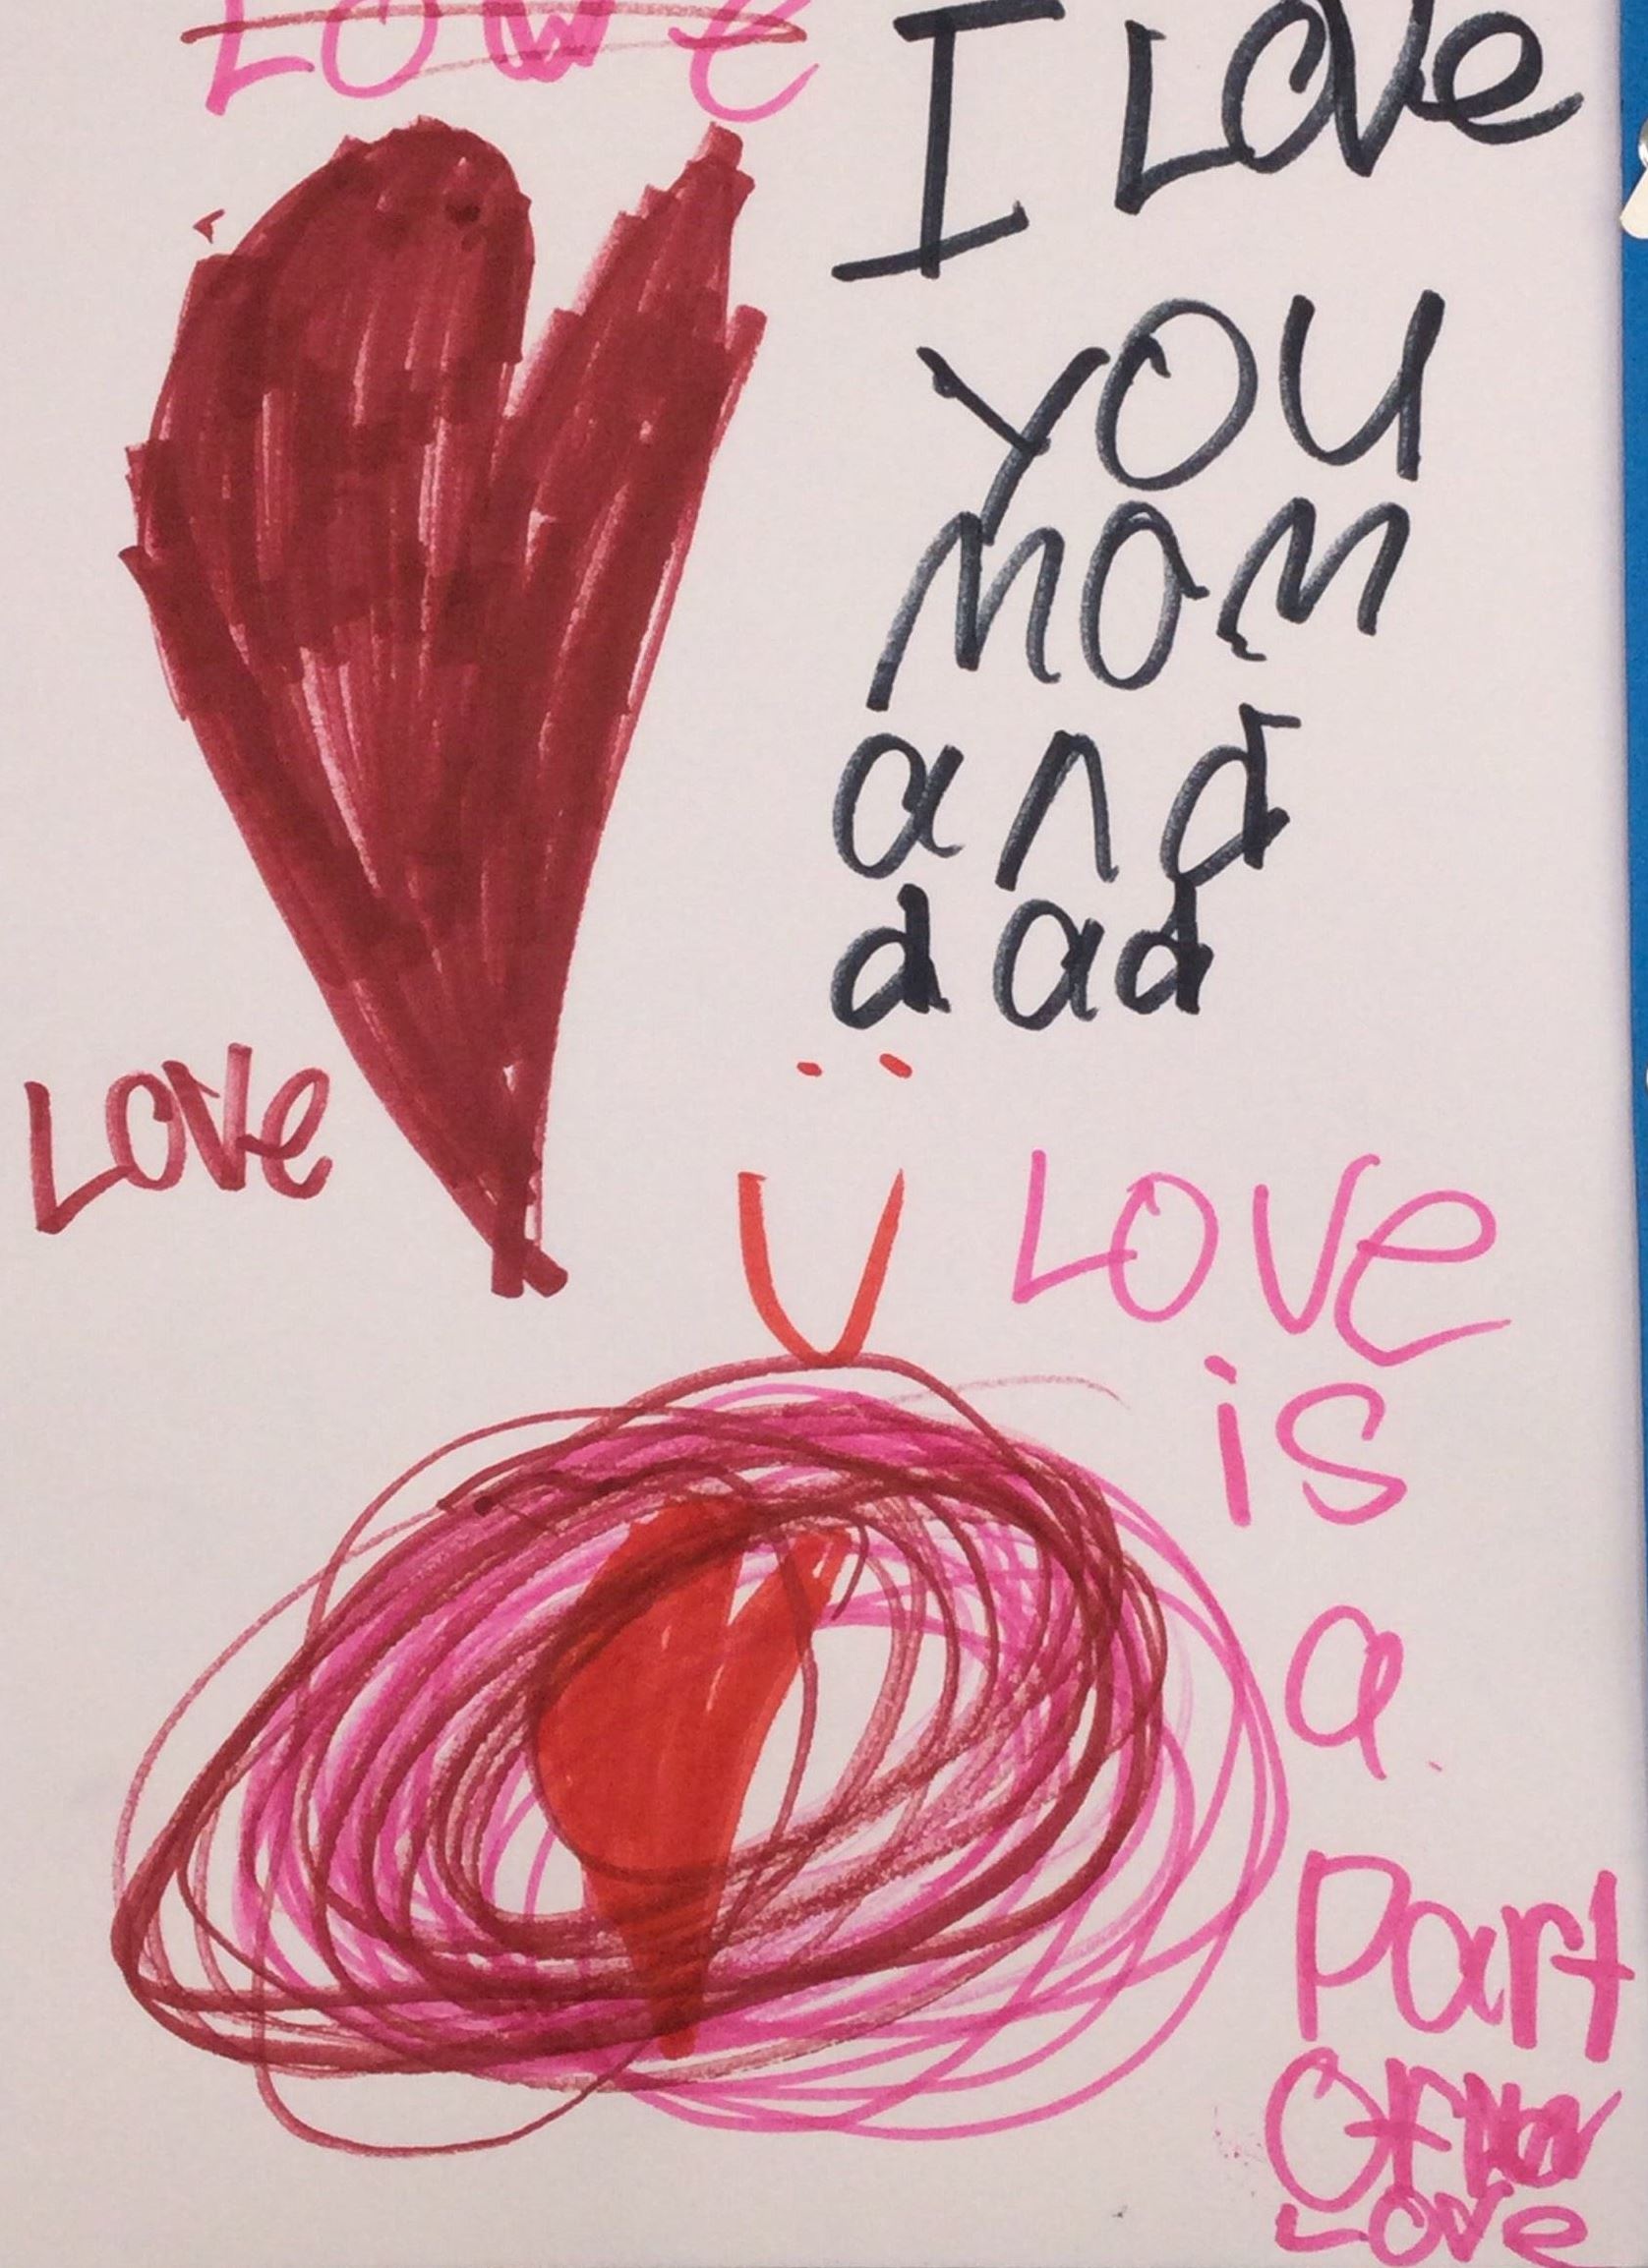 I Love
you
mom
and
dad
Love
Love
is
a
Part
OF
Love